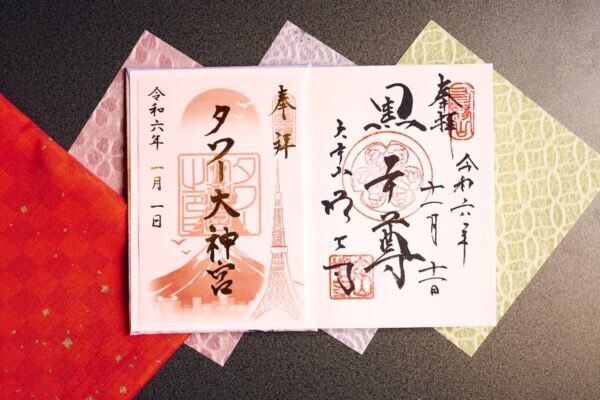 奉拝
令和六年
黒本尊
大本山 増上寺
奉拝
タワー大神宮
令和六年 一月一日